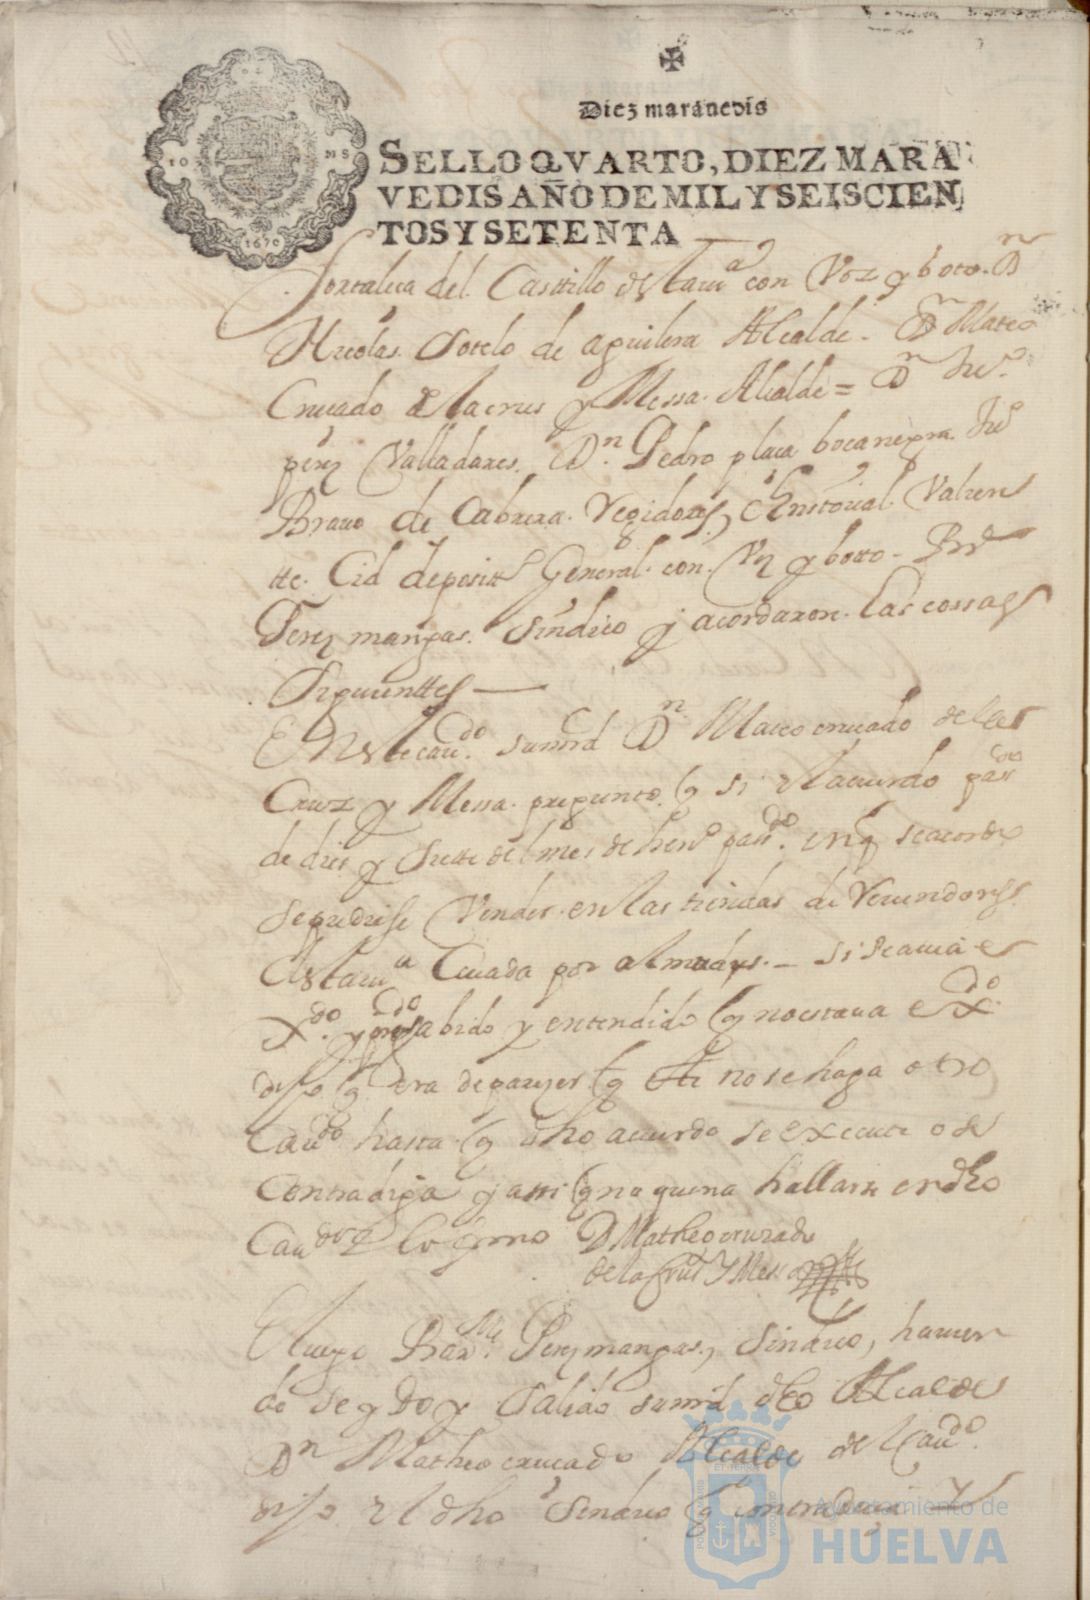 Diez marauedis
SELLO QVARTO, DIEZ MARA
VEDIS AÑO DE MIL Y SEISCIEN
TOS Y SETENTA
10 MS
1670
fortaleca del Casttillo desta con Voz y boto. Dn
Nicolas Sotelo de aguilera Alcalde - Dn Mateo
Crucado de la crus y Messa Alcalde = Dn Juo
perez Valladares. Dn Pedro placa bocanegra Juo
Brauo de Cabrera Regidores, Cristoual Valien
tte Cid depositto General con Vz y botto -
Perez mangas Sindico y acordaron las cossas
Siguienttes
En este caudo su md Dn Mateo crucado de la
Cruz y Messa pregunto q si el acuerdo
de dies y Siette del mes de heno pasdo en q se acordo
se pudiese Vender en las tiendas de Veuendores
desta Ceuada por almudes - si se auia e
Xdo y sabido y entendido q no estaua e Xdo
dijo q era de parezer q no se haga otro
Caudo hasta q dho acuerdo se execute o se
Contradiga y assi q no queria hallarse en dho
Caudo y lo firmo D Matheo cruzado
de la Crus Y Messa
E luego Barme Perez mangas, Sindico, hauien
do se y do y Salido su md dho Alcalde
Dn Matheo crucado Alcalde del Caudo
dijo el dho Sindico q contradecia
Ayuntamiento de
HUELVA